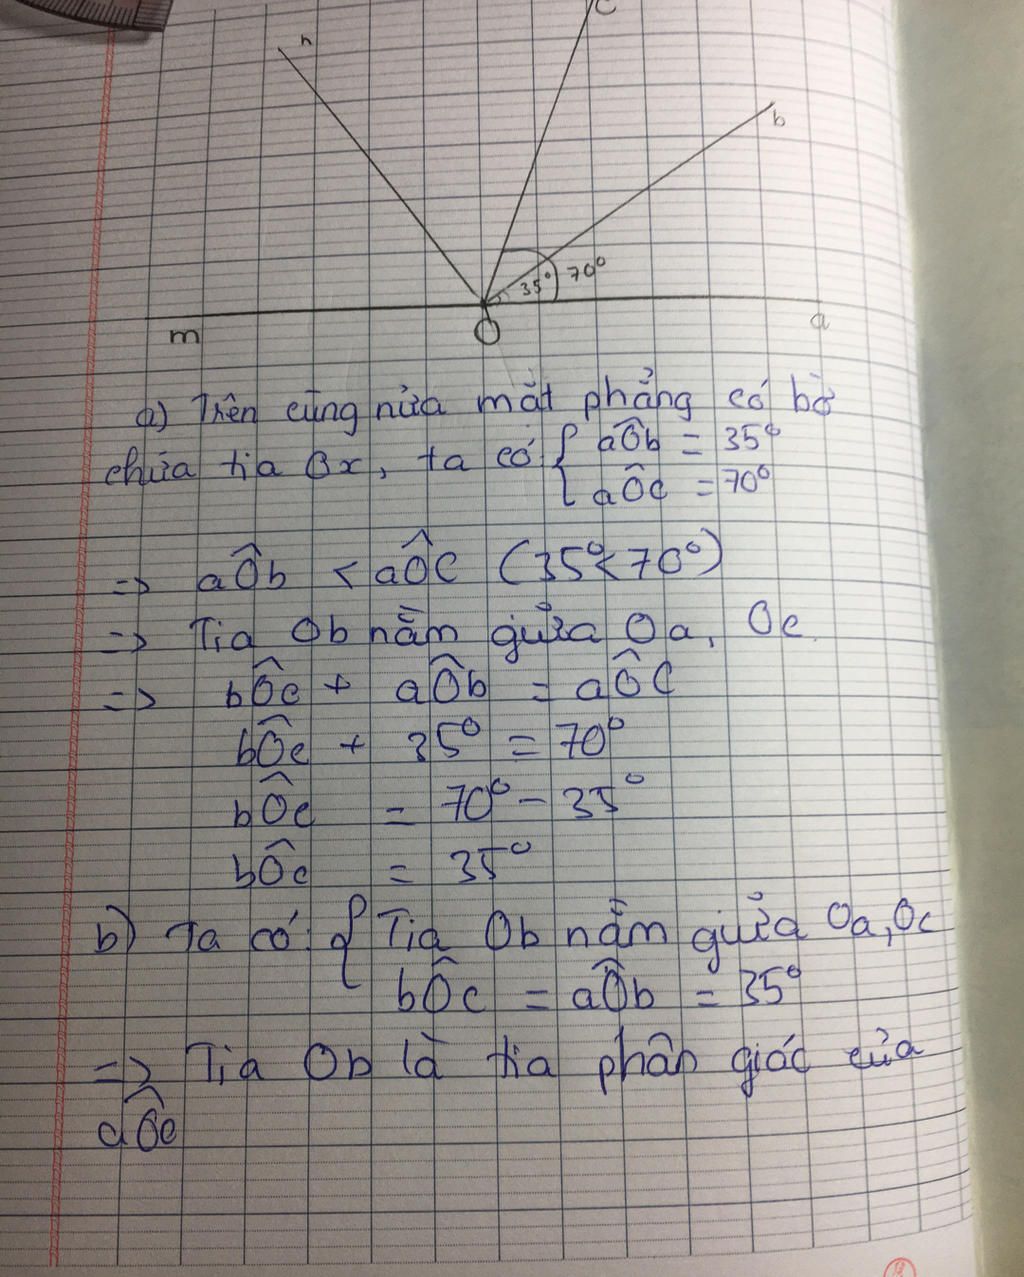 n
c
b
35° 70°
m
O
a
a) Trên cùng nửa mặt phẳng có bờ
chứa tia Ox, ta có { aÔb = 35°
aÔc = 70°
=> aÔb < aÔc (35°<70°)
=> Tia Ob nằm giữa Oa, Oc
=> bÔc + aÔb = aÔc
bÔc + 35° = 70°
bÔc = 70° - 35°
bÔc = 35°
b) Ta có: { Tia Ob nằm giữa Oa, Oc
bÔc = aÔb = 35°
=> Tia Ob là tia phân giác của
aÔc